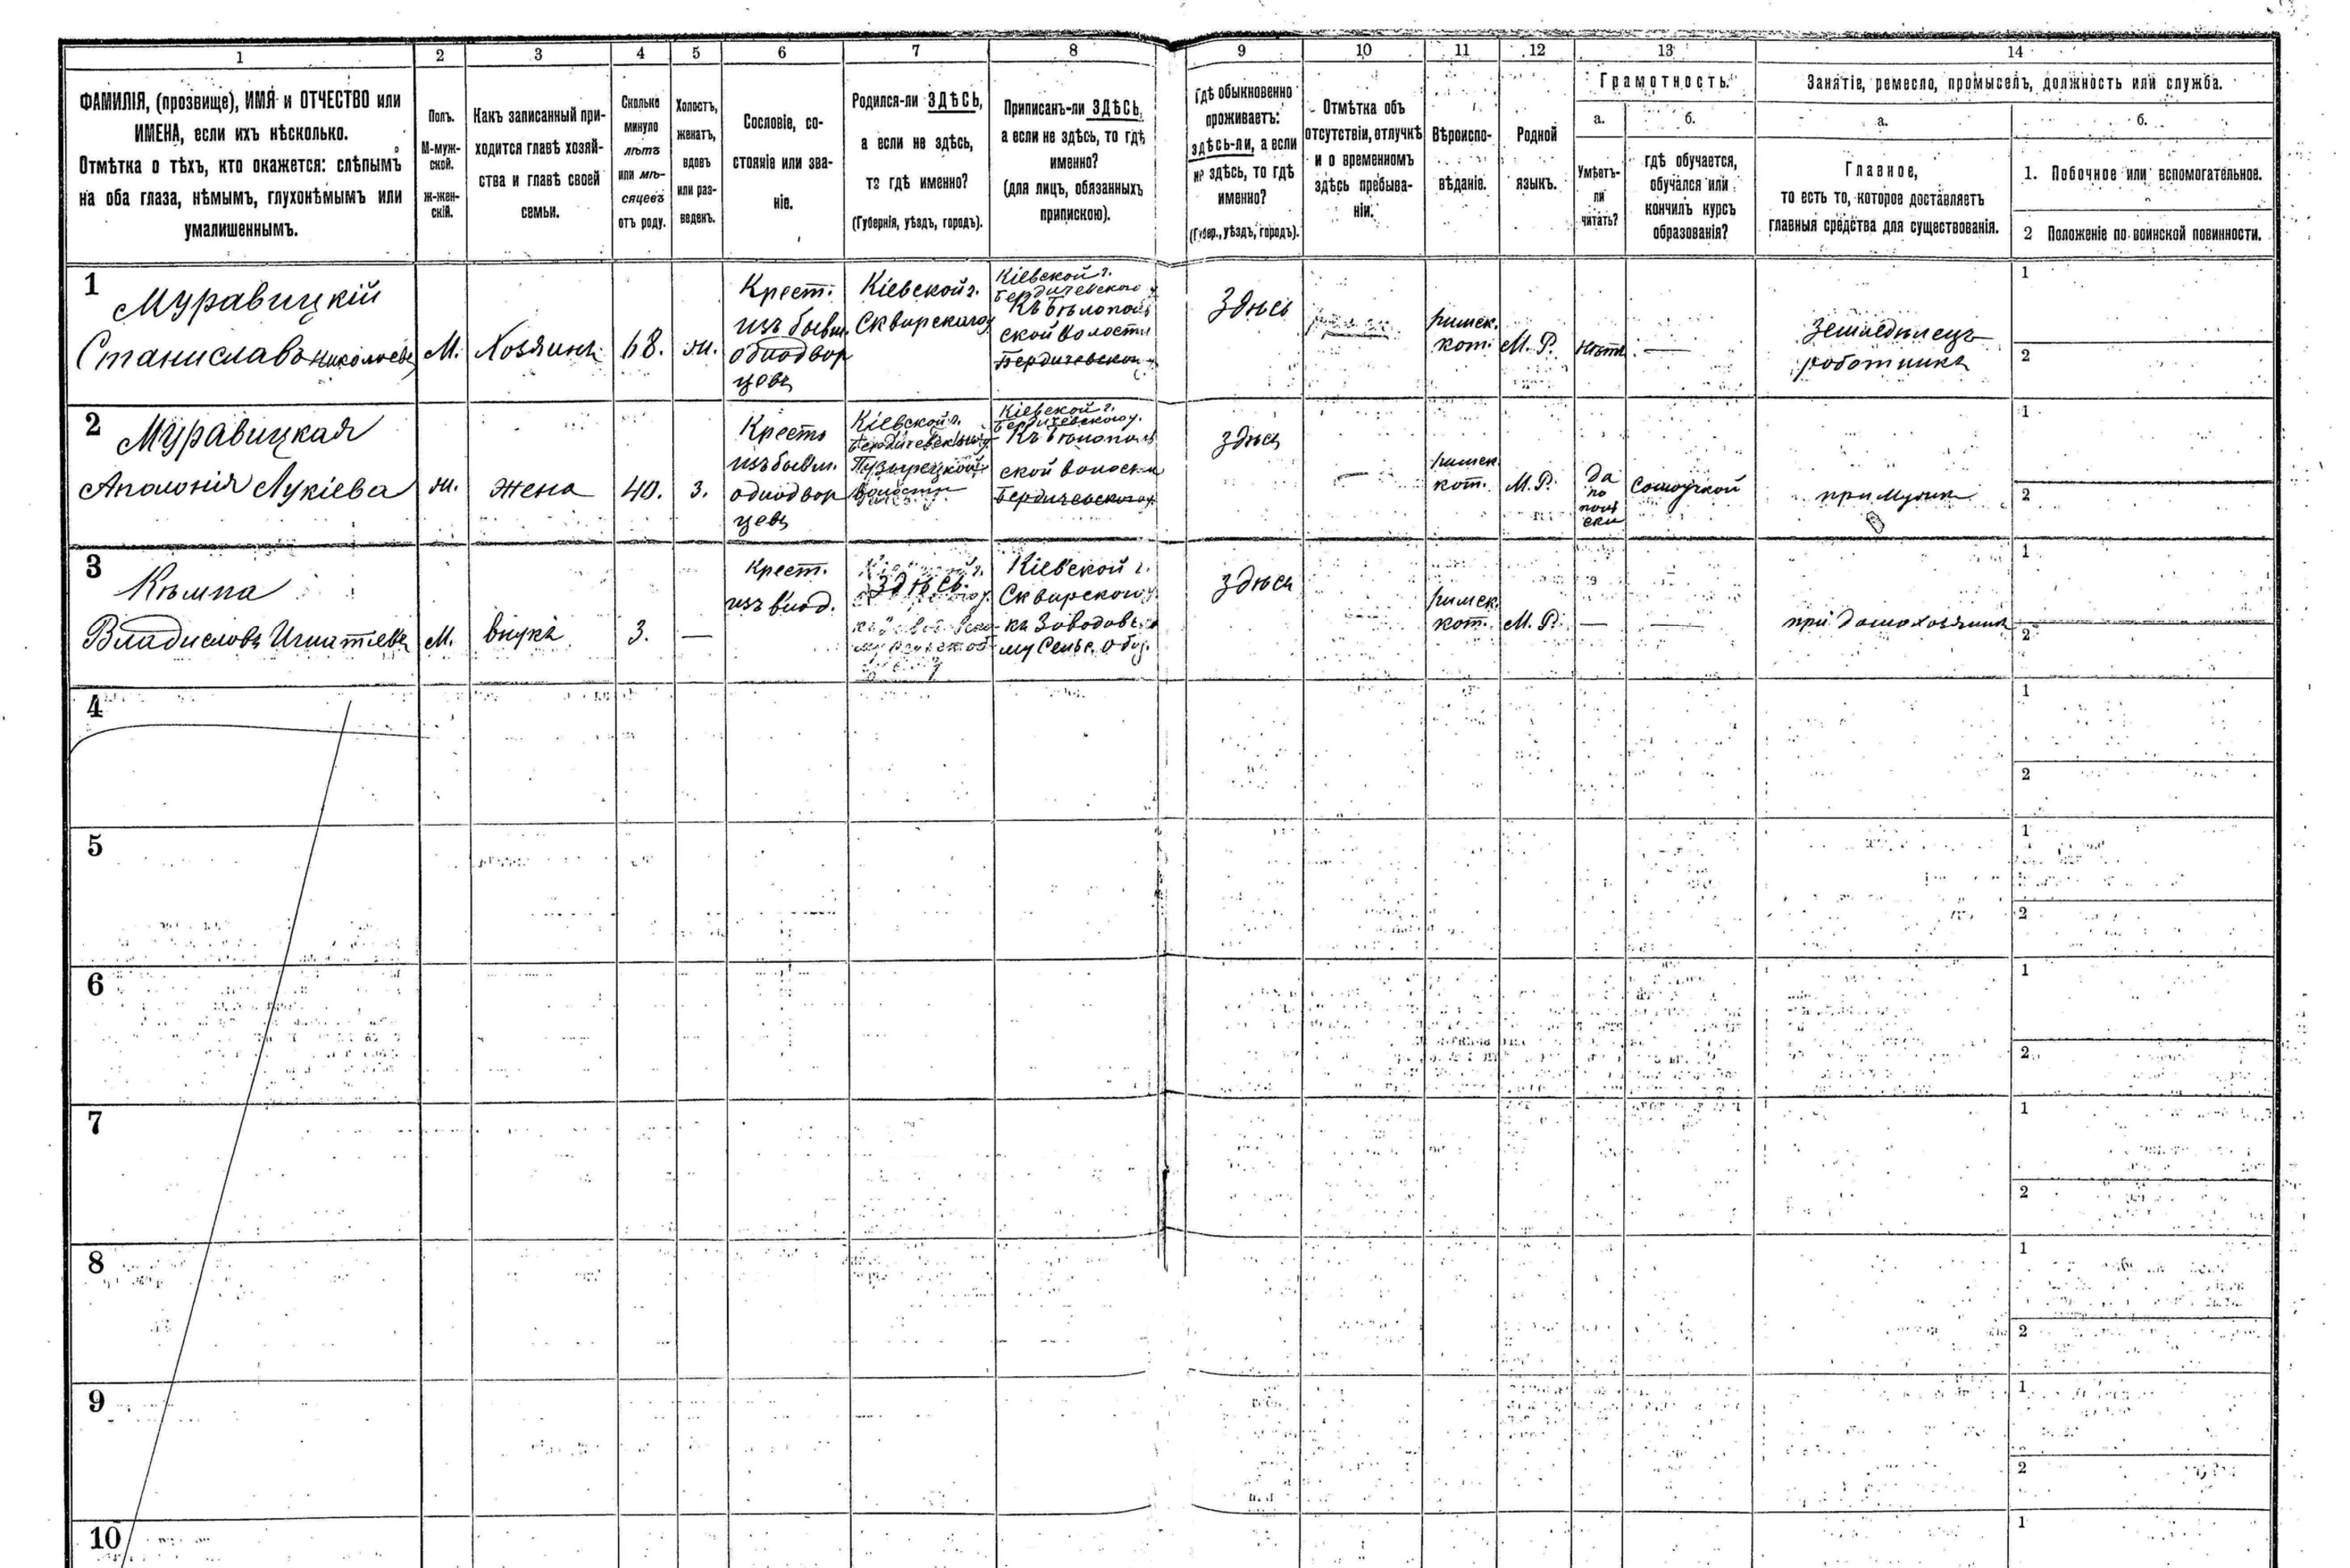 1
2
3
4
5
6
7
8
9
10
11
12
13
14
ФАМИЛІЯ, (прозвище), ИМЯ и ОТЧЕСТВО или
ИМЕНА, если ихъ нѣсколько.
Отмѣтка о тѣхъ, кто окажется: слѣпымъ
на оба глаза, нѣмымъ, глухонѣмымъ или
умалишеннымъ.
Полъ.
М-муж-
ской.
Ж-жен-
скій.
Какъ записанный при-
ходится главѣ хозяй-
ства и главѣ своей
семьи.
Сколько
минуло
лѣтъ
или мѣ-
сяцевъ
отъ роду.
Холостъ,
женатъ,
вдовъ
или раз-
веденъ.
Сословіе, со-
стояніе или зва-
ніе.
Родился-ли ЗДѢСЬ,
а если не здѣсь,
то гдѣ именно?
(Губернія, уѣздъ, городъ).
Приписанъ-ли ЗДѢСЬ,
а если не здѣсь, то гдѣ
именно?
(для лицъ, обязанныхъ
припискою).
Гдѣ обыкновенно
проживаетъ:
здѣсь-ли, а если
не здѣсь, то гдѣ
именно?
(Губер., уѣздъ, городъ).
Отмѣтка объ
отсутствіи, отлучкѣ
и о временномъ
здѣсь пребыва-
ніи.
Вѣроиспо-
вѣданіе.
Родной
языкъ.
Грамотность.
а.
Умѣетъ-
ли
читать?
б.
гдѣ обучается,
обучался или
кончилъ курсъ
образованія?
Занятіе, ремесло, промыселъ, должность или служба.
а.
Главное,
то есть то, которое доставляетъ
главныя средства для существованія.
б.
1. Побочное или вспомогательное.
2 Положеніе по воинской повинности.
1
Муравицкій
Станиславъ Николаевъ
М.
Хозяинъ
68.
ж.
Крест.
изъ бывш.
однодвор
цевъ
Кіевской г.
Сквирскаго у
Кіевской г.
Бердичевскаго у
Къ Бѣлополь
ской Волости
Бердичевскаго у
Здѣсь
римск.
кат.
М. Р.
нѣтъ
—
Земледѣлецъ
работникъ
1
2
2
Муравицкая
Аполонія Лукіева
ж.
жена
40.
з.
Крестъ
изъ бывш.
однодвор
цевъ
Кіевской г.
Бердичевскаго у
Волости
Кіевской г.
Бердичевскаго у.
Къ Бѣлополь
ской волости
Бердичевскаго у
здѣсь
—
римск
кат.
М. Р.
да
по
поль
ски
при мужѣ
1
2
3
Кѣмпа
Владиславъ Игнатіевъ
М.
внукъ
3.
—
Крест.
Здѣсь.
Кіевской г.
Сквирскаго у.
къ Заводовс
му Сельс. Общ.
здѣсь
—
римск.
кат.
М. Р.
—
—
при домохозяинѣ
1
2
4
1
2
5
1
2
6
1
2
7
1
2
8
1
2
9
1
2
10
1